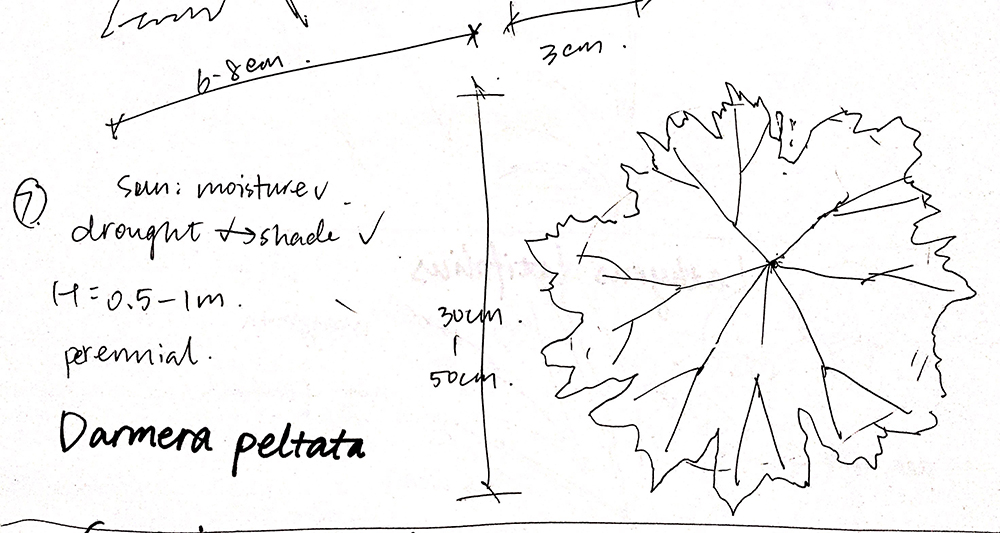 6-8cm.
3cm.
7.
Sun: moisture✓.
drought ↔ shade ✓
H = 0.5-1m.
perennial.
30cm.
50cm.
Darmera peltata